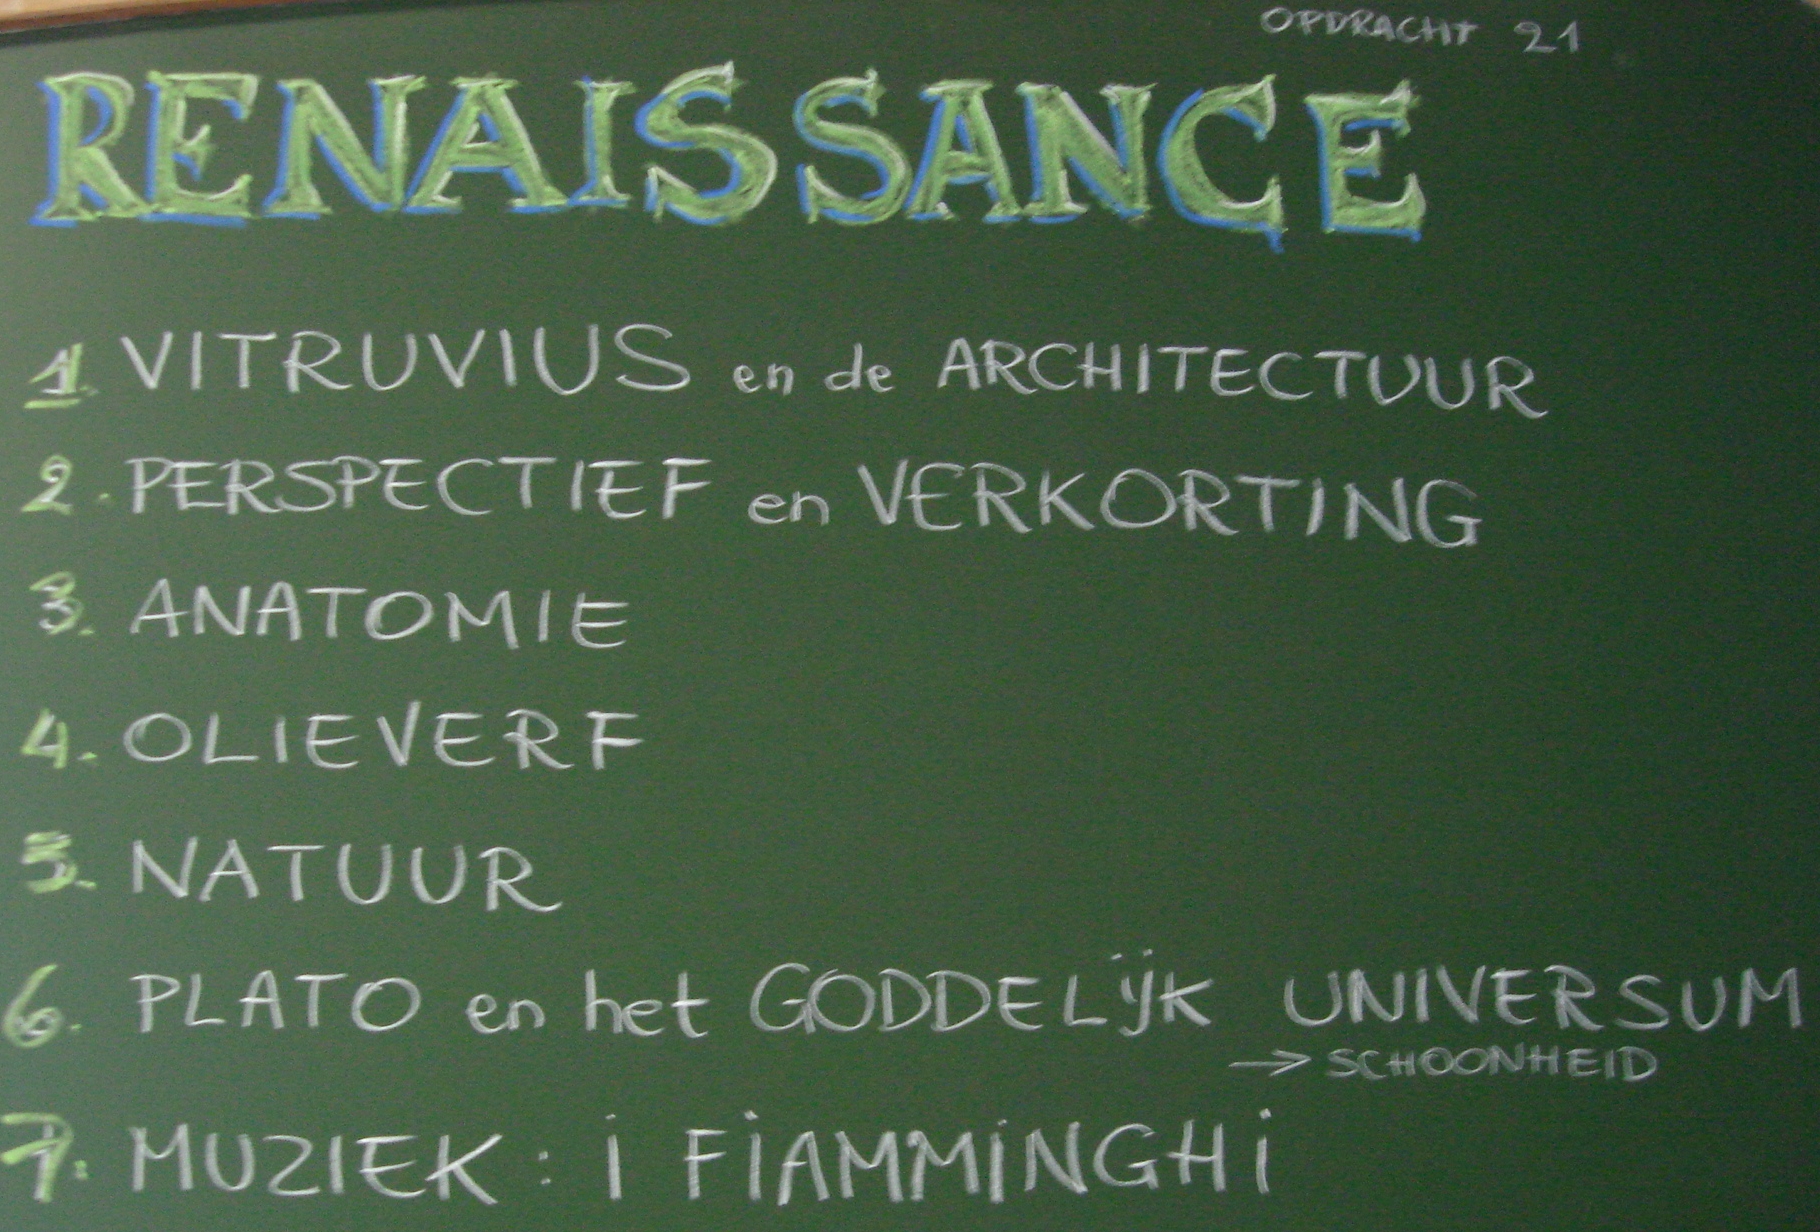 OPDRACHT 21
RENAISSANCE
1. VITRUVIUS en de ARCHITECTUUR
2. PERSPECTIEF en VERKORTING
3. ANATOMIE
4. OLIEVERF
5. NATUUR
6. PLATO en het GODDELijK UNIVERSUM
→ SCHOONHEID
7. MUZIEK : i FiAMMiNGHi